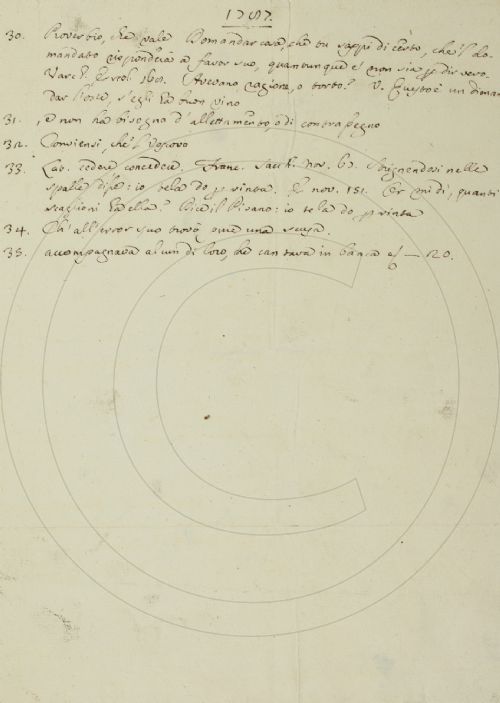 1787.
30. Proverbio, che vale Domandar cosa, che tu sappi di certo, che'l do-
mandato risponderà a favor suo, quantunque e' non sia p dir vero.
Varch. Ercol. 168. Avevano ragione, o torto? V. Questo è un diman
dar l'oste, s'egli ha buon vino
31. , e non ha bisogno d'allettamento, o di contrapegno
32. Conviensi, che'l Vescovo
33. Lat. cedere concedere. Franc. Sacch. Nov. 67. Strignendosi nelle
spalle disse: io te la do p vinta. E nov. 151. Or mi di, quanti
scaglioni ha ella? Dice il Pisano: io te la do p vinta
34. all'error suo trovò pure una scusa.
35. accompagnava alcun di loro, che cantava in banca — 20.